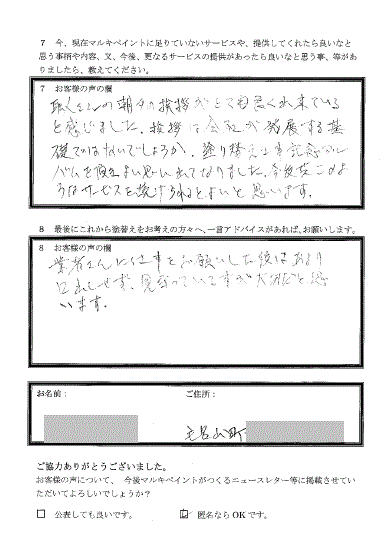 7 今、現在マルキペイントに足りていないサービスや、提供してくれたら良いなと
思う事柄や内容、又、今後、更なるサービスの提供があったら良いなと思う事、等があ
りましたら、教えてください。
7 お客様の声の欄
職人さんの朝夕の挨拶がとても良く出来ている
と感じました。挨拶は会社が発展する基
礎ではないでしょうか。塗り替え工事記念アル
バムを頂きよい思い出になりました。今後共このよ
うなサービスを続けられるとよいと思います。
8 最後にこれから塗替えをお考えの方々へ、一言アドバイスがあれば、お願いします。
8 お客様の声の欄
業者さんに仕事をお願いした後はあまり
口出しせず、見守っていますが大切だと思
います。
お名前:
ご住所:
毛呂山町
ご協力ありがとうございました。
お客様の声について、今後マルキペイントがつくるニュースレター等に掲載させてい
ただいてよろしいでしょうか?
□ 公表しても良いです。 ☑ 匿名なら OK です。